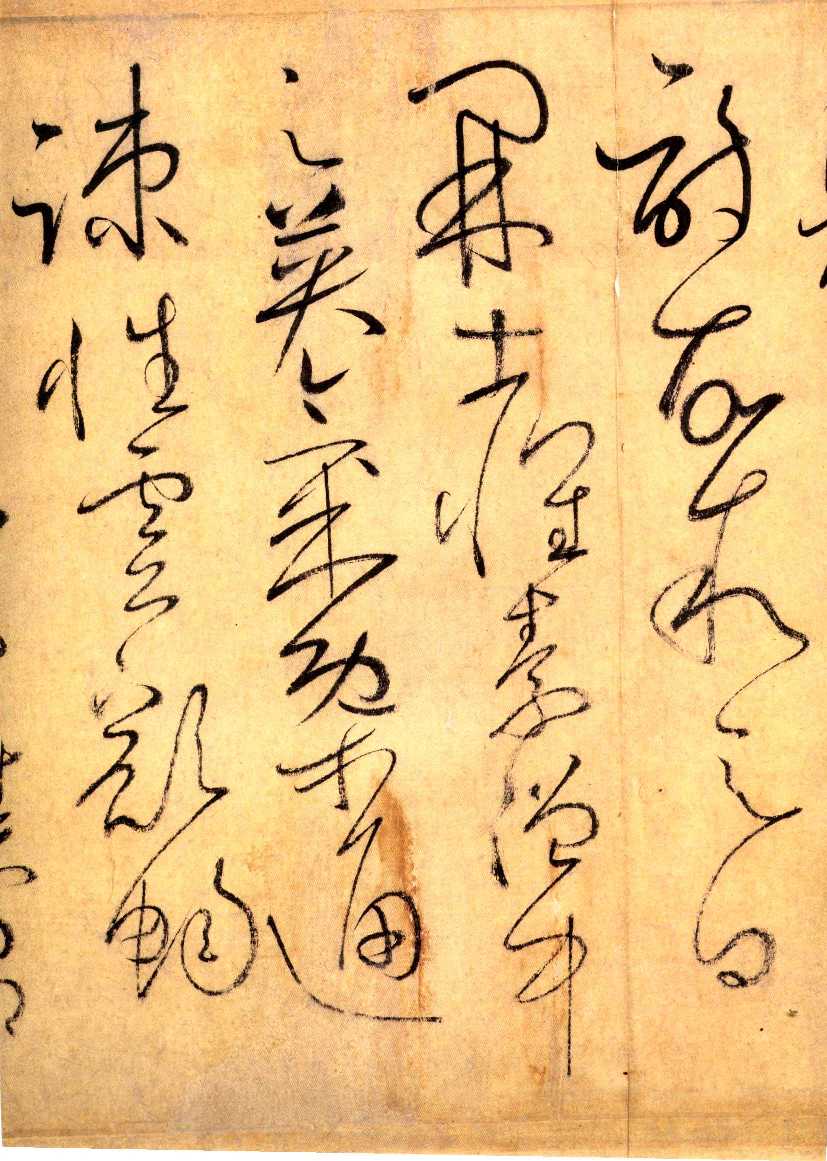 詩故敘之曰
開士懷素僧中
之英氣概通
疎性靈豁暢